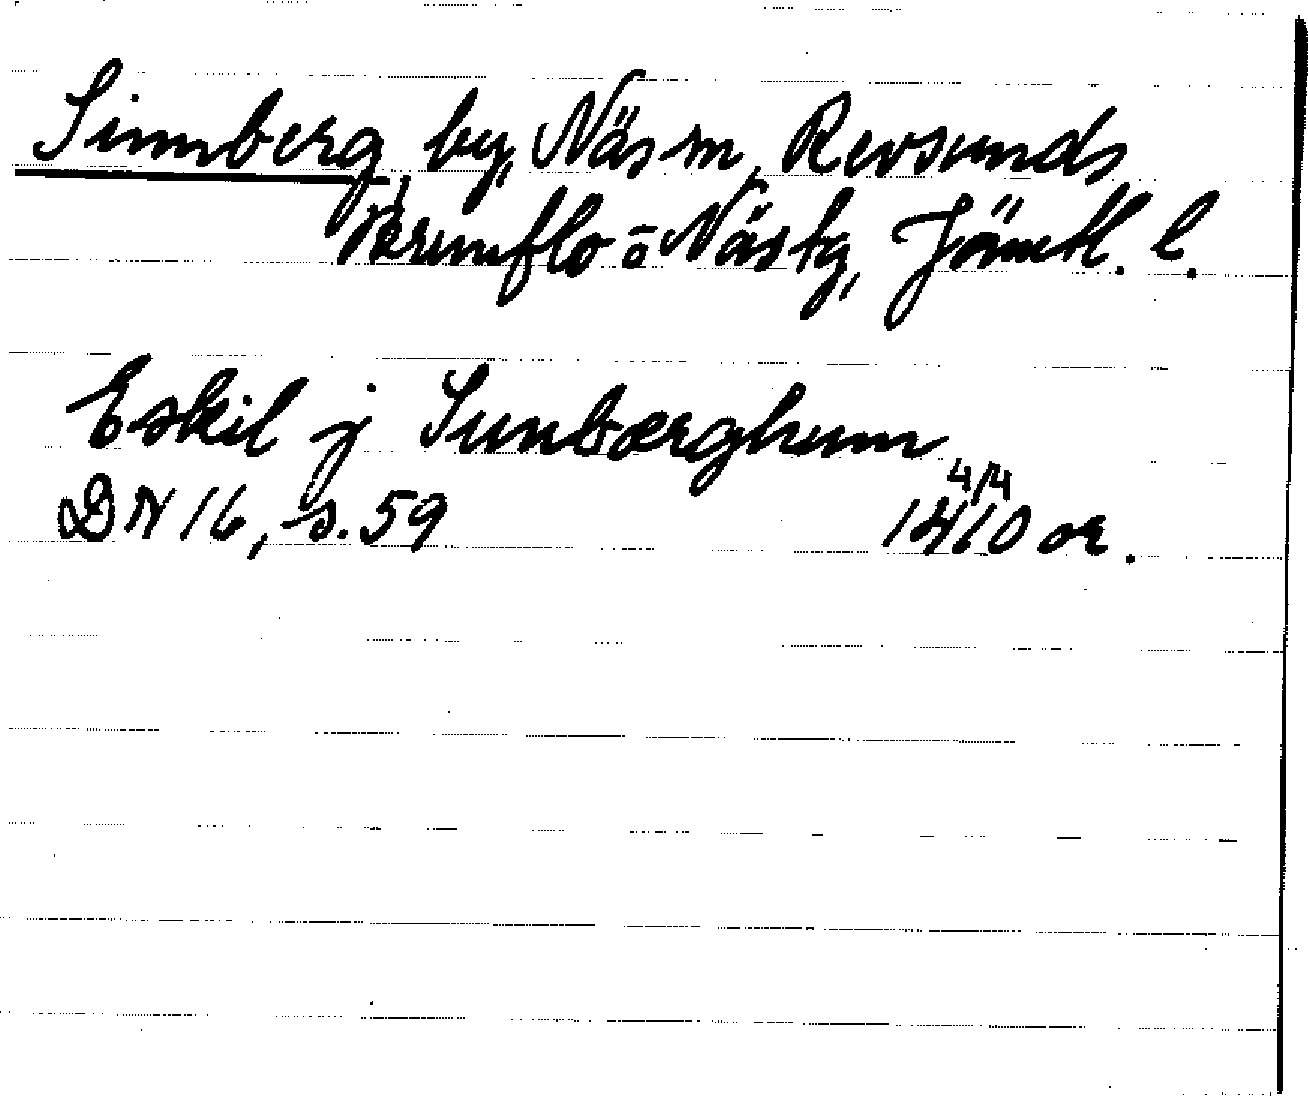 Sinnberg, by, Näs sn, Revsunds
Brunflo o Näs tg, Jämtl. l.
Eskil j Sunbærghum
DN 16, s. 59 4/4 1410 or.